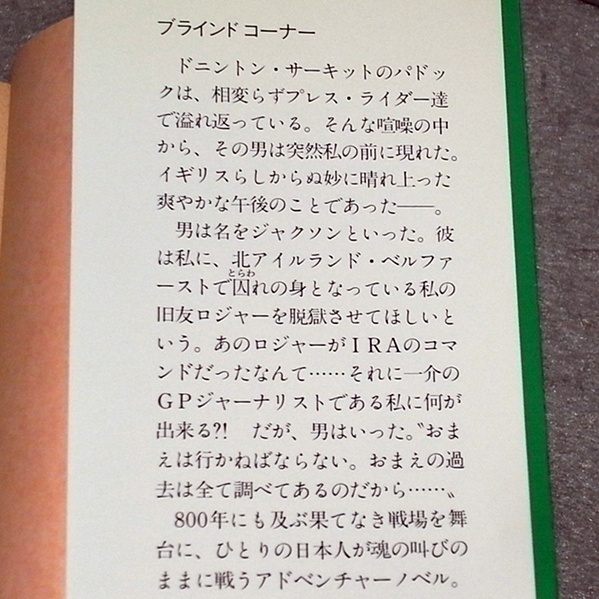 ブラインドコーナー
ドニントン・サーキットのパドッ
クは、相変らずプレス・ライダー達
で溢れ返っている。そんな喧噪の中
から、その男は突然私の前に現れた。
イギリスらしからぬ妙に晴れ上った
爽やかな午後のことであった――。
男は名をジャクソンといった。彼
は私に、北アイルランド・ベルファ
とらわ
ーストで囚れの身となっている私の
旧友ロジャーを脱獄させてほしいと
いう。あのロジャーがＩＲＡのコマ
ンドだったなんて……それに一介の
ＧＰジャーナリストである私に何が
出来る?!　だが、男はいった。〝おま
えは行かねばならない。おまえの過
去は全て調べてあるのだから……〟
800年にも及ぶ果てなき戦場を舞
台に、ひとりの日本人が魂の叫びの
ままに戦うアドベンチャーノベル。